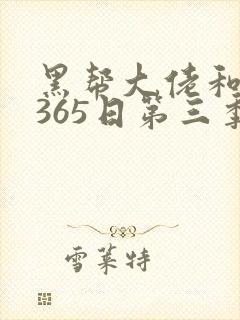 黑帮大佬和
365日第三季
雪莱特